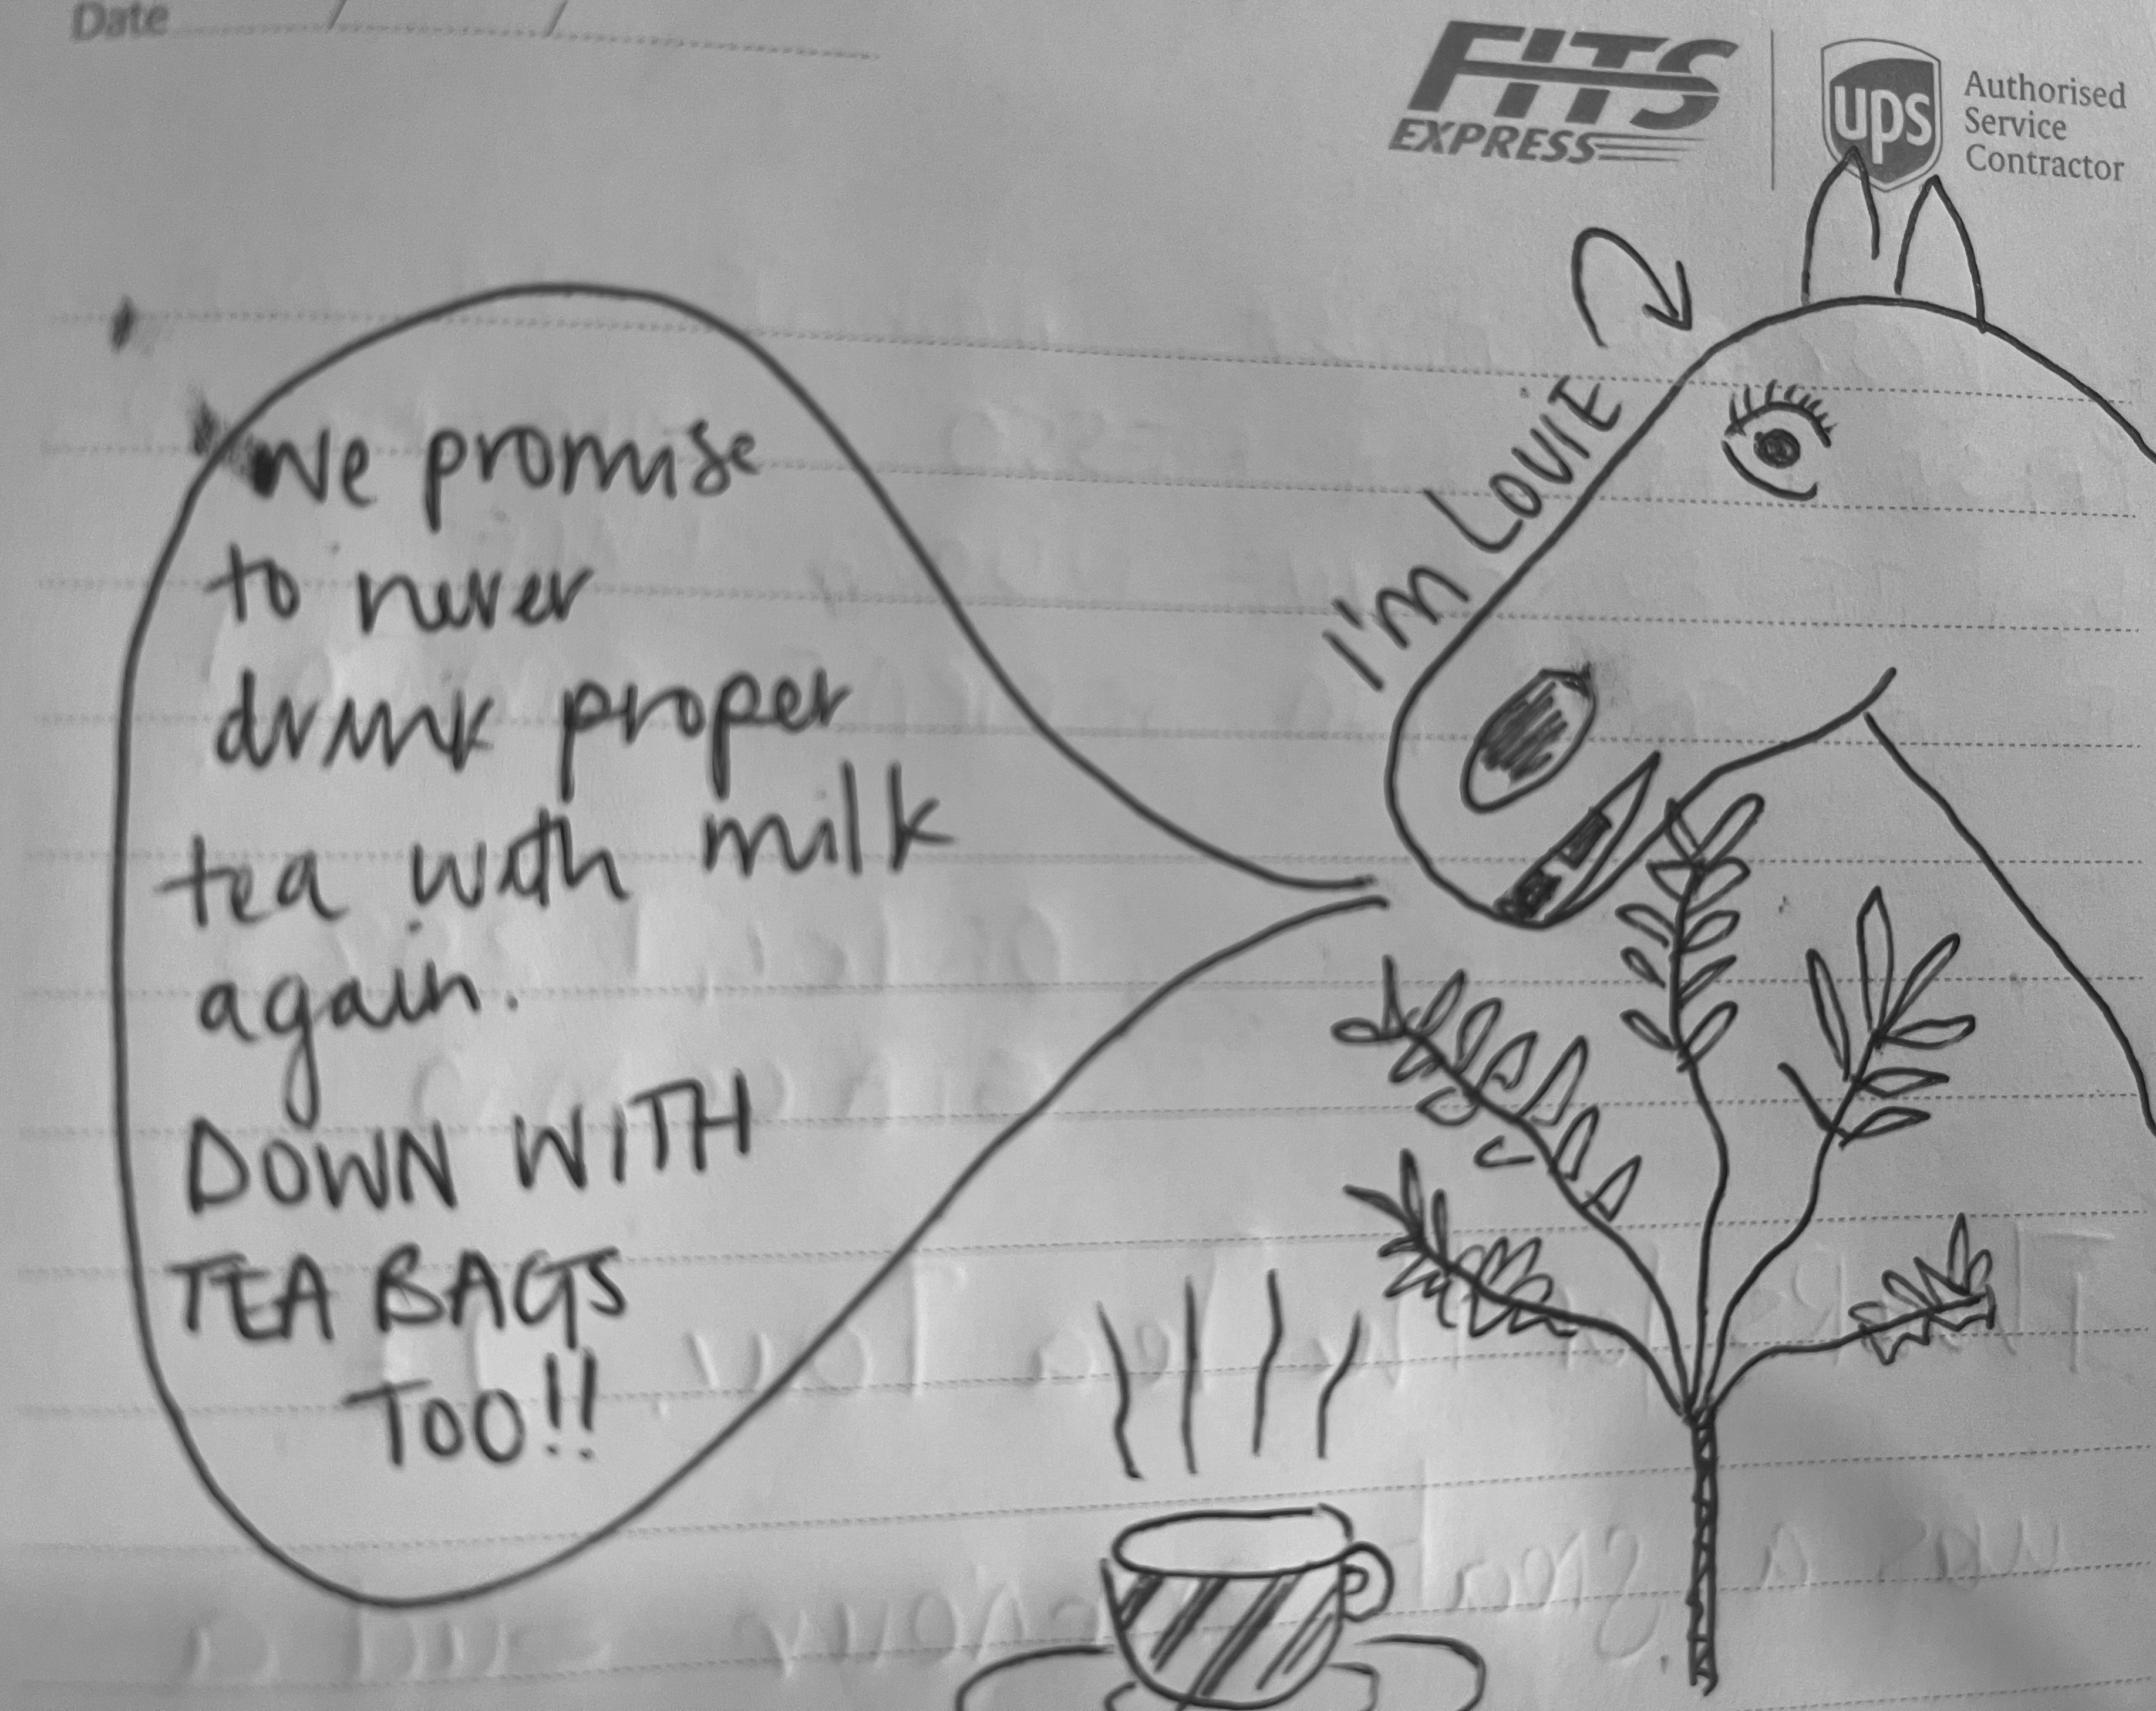 Date / /
FITS
EXPRESS
ups
Authorised
Service
Contractor
I'm LOUIE
We promise
to never
drink proper
tea with milk
again.
DOWN WITH
TEA BAGS
TOO!!